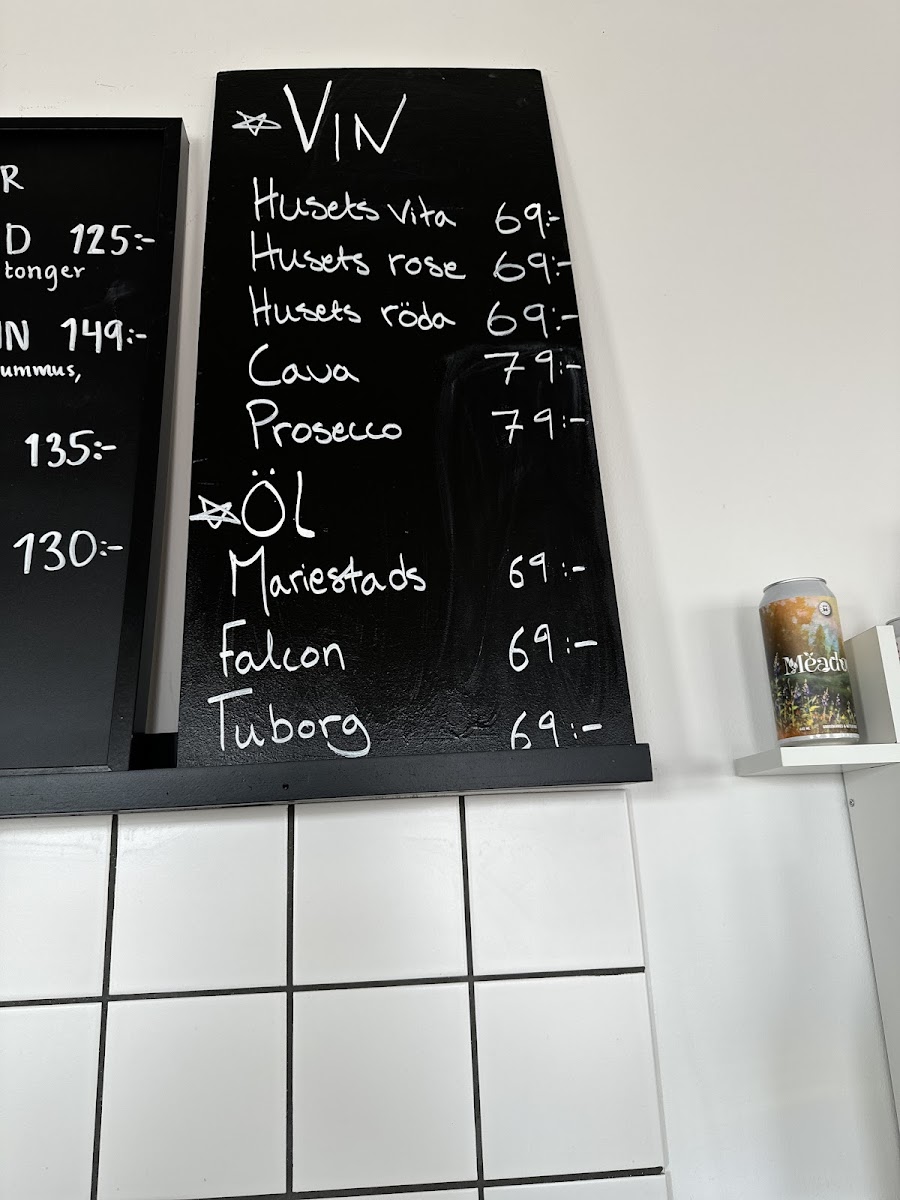 R
D 125:-
tonger
IN 149:-
ummus,
135:-
130:-
VIN
Husets vita 69:-
Husets rose 69:-
Husets röda 69:-
Cava 79:-
Prosecco 79:-
ÖL
Mariestads 69:-
Falcon 69:-
Tuborg 69:-
Mëado